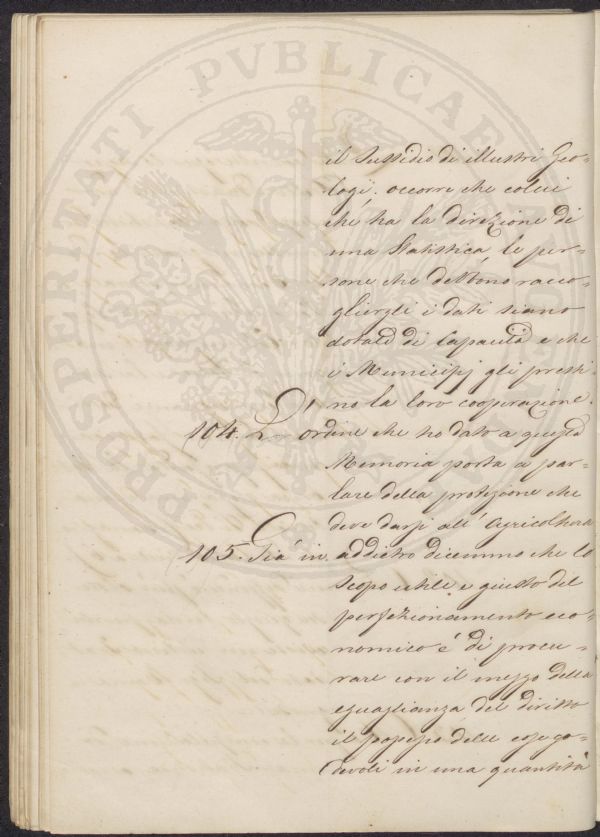 PROSPERITATI PVBLICAE
il sussidio di illustri Geo-
logi. occorre che colui
che ha la direzione di
una Statistica, le per-
sone che debbono racco-
gliergli i dati siano
dotate di Capacità e che
i Municipj gli presti-
no la loro cooperazione.
104. L'ordine che ho dato a questa
Memoria porta a par-
lare della protezione che
deve darsi all'Agricoltura
105. Già in addietro dicemmo che lo
scopo utile e giusto del
perfezionamento eco-
nomico é di procu-
rare con il mezzo della
eguaglianza del diritto
il possesso delle cose go-
devoli in una quantità